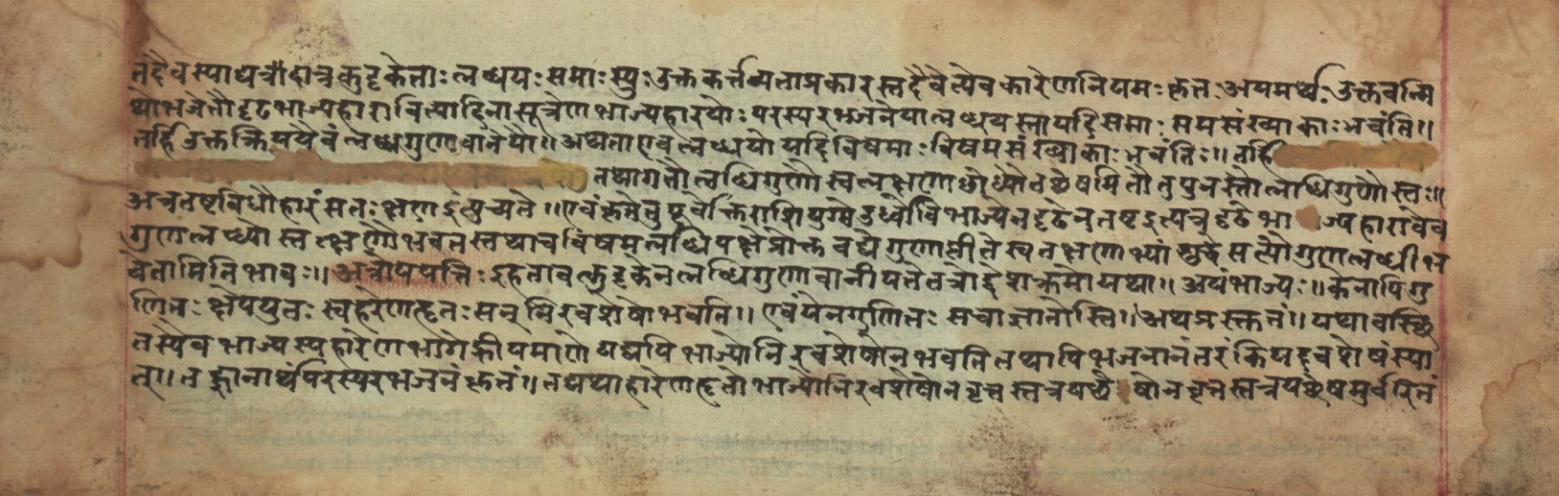 तदैवस्याद्यत्रादात्रकुट्टकेताः लब्धयः समाः स्युः उक्तकर्त्तव्यताप्रकारस्तदैवैत्येवकारेणनियमः कृतः अयमर्थः उक्तवन्मि
थोभजेत्तौदृढभाज्यहारावित्यादिनासूत्रेणभाज्यहारयोः परस्परभजनेयालब्धयस्तायदिसमाः समसंख्याकाः भवंति॥
तर्हिउक्तक्रिययैवंलब्धगुणेवानेयौ॥ अथताएवलब्धयोयदिविषमाः विषमसंख्याकाः भवंतिः॥ तर्हि
तथागतौलब्धिगुणौस्वतक्षणाछोध्यौतच्छेषमितौतुपुनस्तौलब्धिगुणौस्तः॥
अचतष्टविधौहारंसतःक्षणइत्युच्यते॥ एवंकृतेतुपूर्वोक्तेराशियुग्मेउर्ध्वोविभाज्येनदृढेनतष्टइत्यत्रदृढभा ज्यहारावेव
गुणलब्ध्योस्तत्क्षणौभवतस्तथाचविषमलब्धिपक्षेप्रोक्तवद्येगुणाप्तीतेस्वतक्षणाभ्यांशुद्धेसत्यौगुणलब्धीभ
वेतामितिभावः॥ अत्रोपपत्तिः इहतावत्कुट्टकेनलब्धिगुणेवानीयतेतत्रोद्देशक्रमोयथा॥ अयंभाज्यः॥ केनापिगु
णितः क्षेपयुतः स्वहरेणहृतः सन् निरवशेषोभवति॥ एवंयेनगुणितः सचाज्ञातोस्ति॥ अथप्रस्तुतं॥ यथावस्थि
तस्यैवभाज्यस्यहारेणभागेक्रीयमाणेयद्यपिभाज्योनिरवशेषोनभवतितथापिभजनानंतरंकियदवशेषंस्या
त्॥ तज्ज्ञानार्थंपरस्परभजनंकृतं॥ तद्यथाहारेणहृतोभाज्योनिरवशेषोनवृत्तस्तत्रयच्छे षोनवृत्तस्तत्रयच्छेषमुर्वरितं